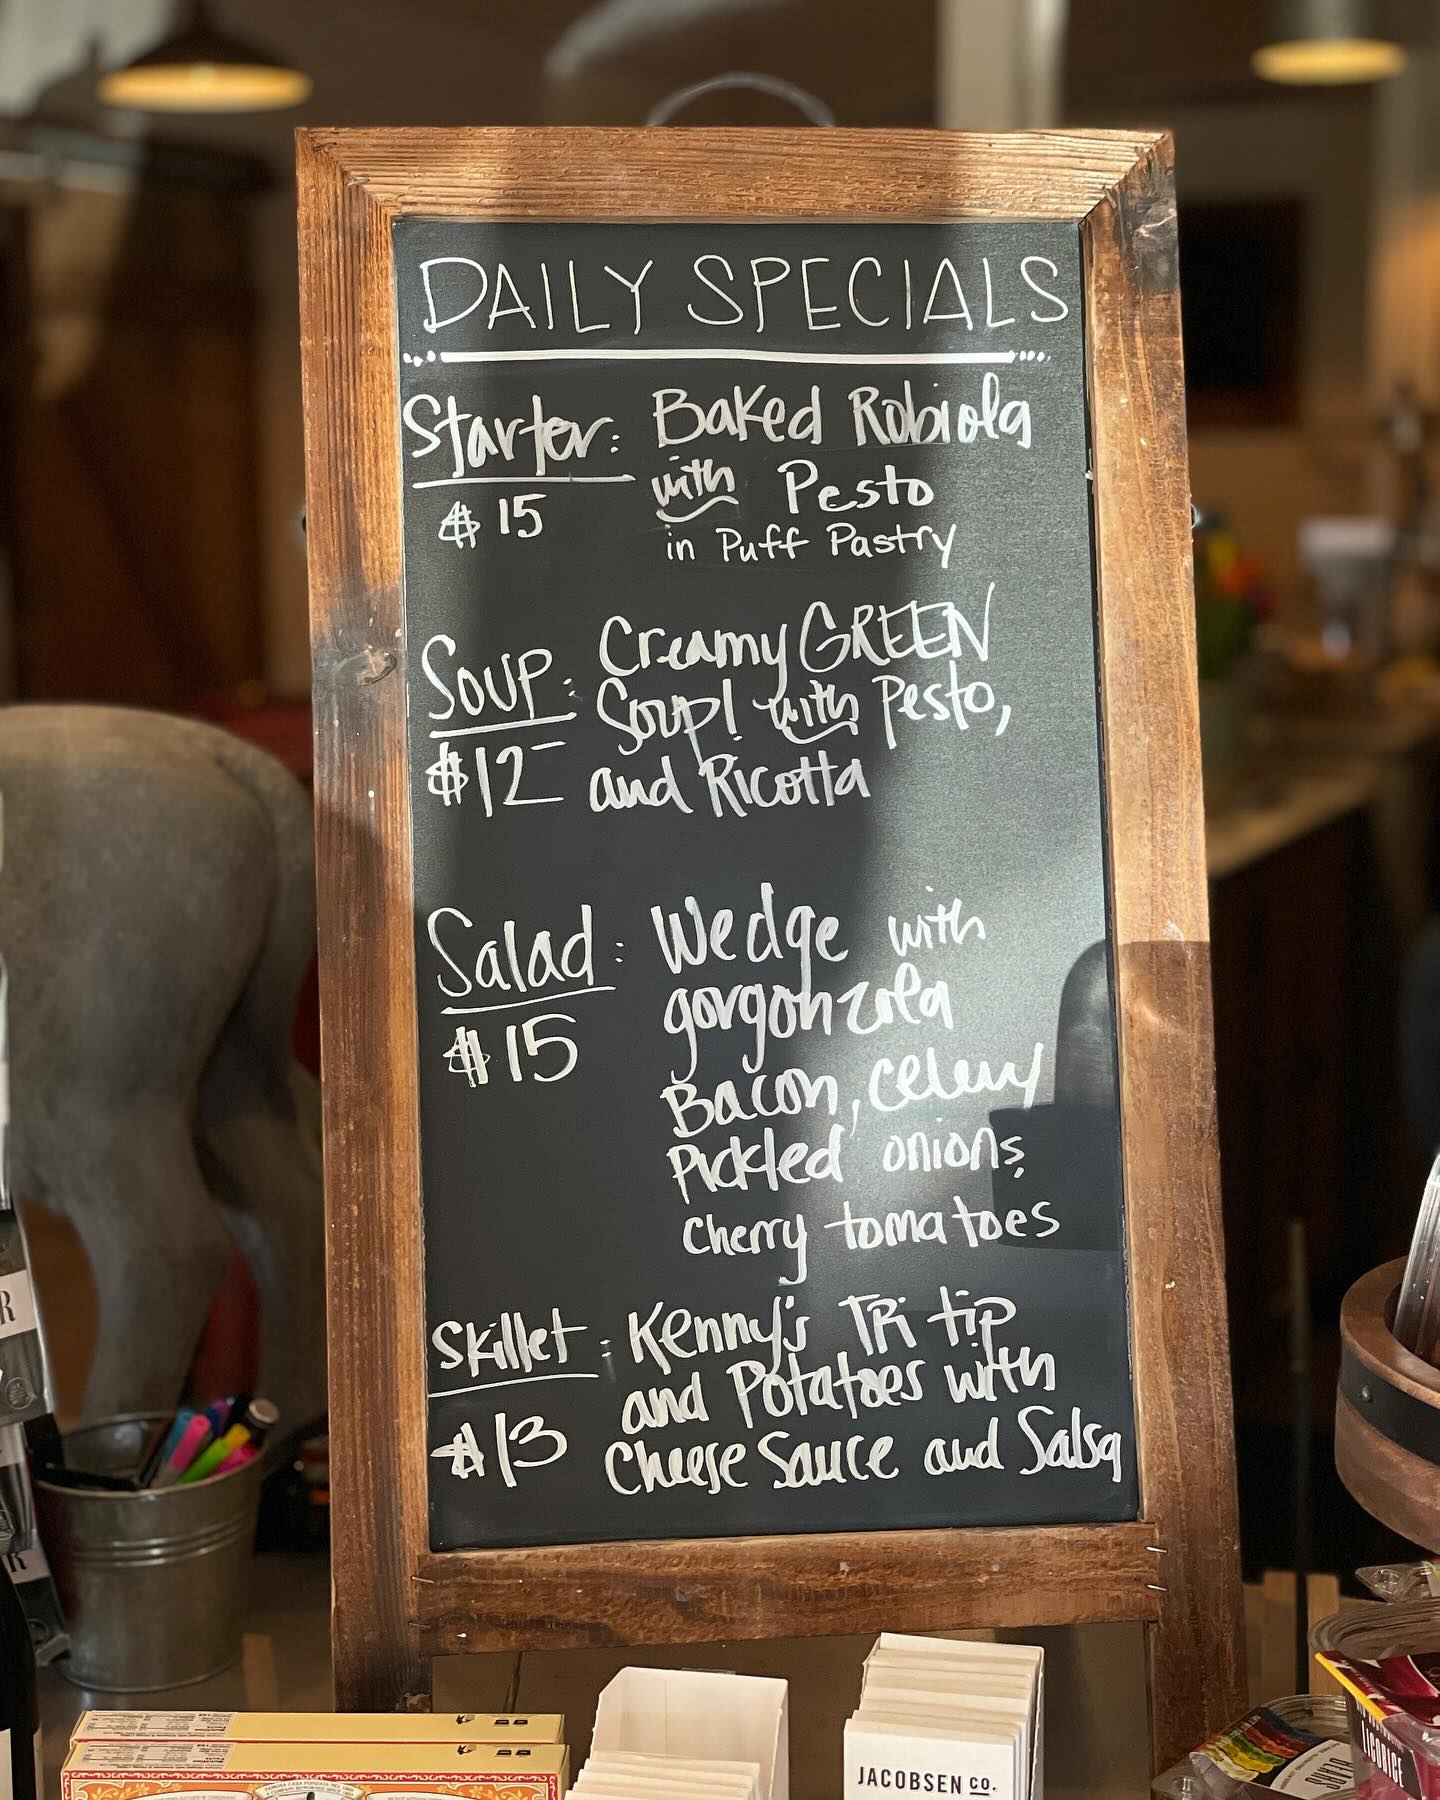 DAILY SPECIALS
Starter: Baked Robiola
$15 with Pesto
in Puff Pastry
Soup: Creamy GREEN
Soup! with Pesto,
$12 and Ricotta
Salad: Wedge with
$15 gorgonzola
Bacon, celery
Pickled onions,
cherry tomatoes
Skillet: Kenny's TRi tip
and Potatoes with
$13 Cheese Sauce and Salsa
R
R
JACOBSEN CO.
LICORICE